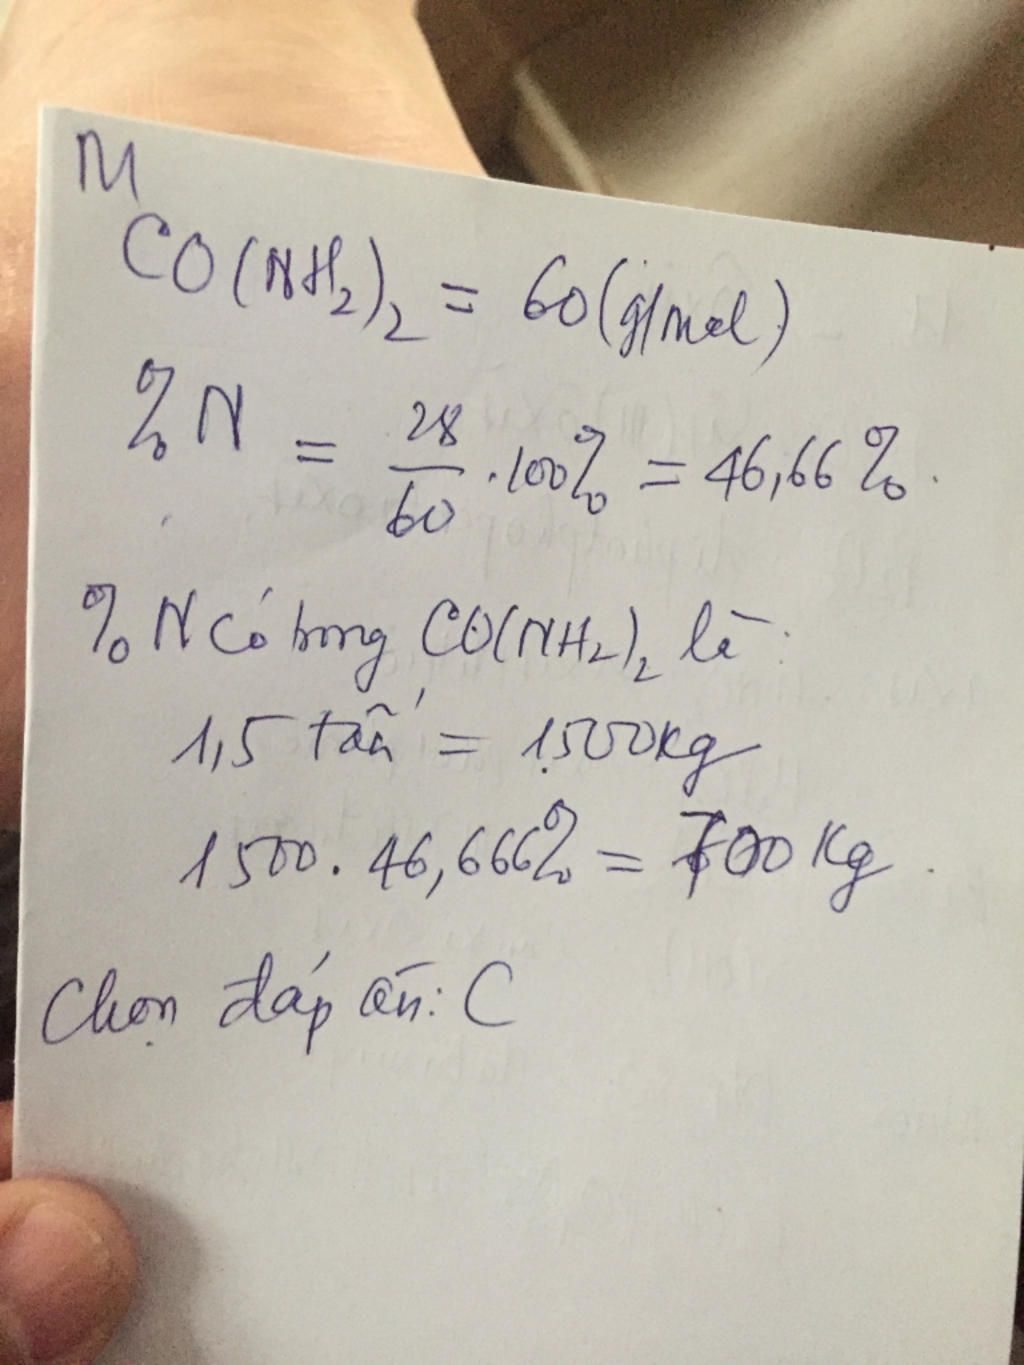 M
CO(NH₂)₂ = 60(g/mol)
%N = 28/60 . 100% = 46,66%.
%N có trong CO(NH₂)₂ là:
1,5 tấn = 1.500kg
1500. 46,666% = 700 Kg.
Chọn đáp án: C